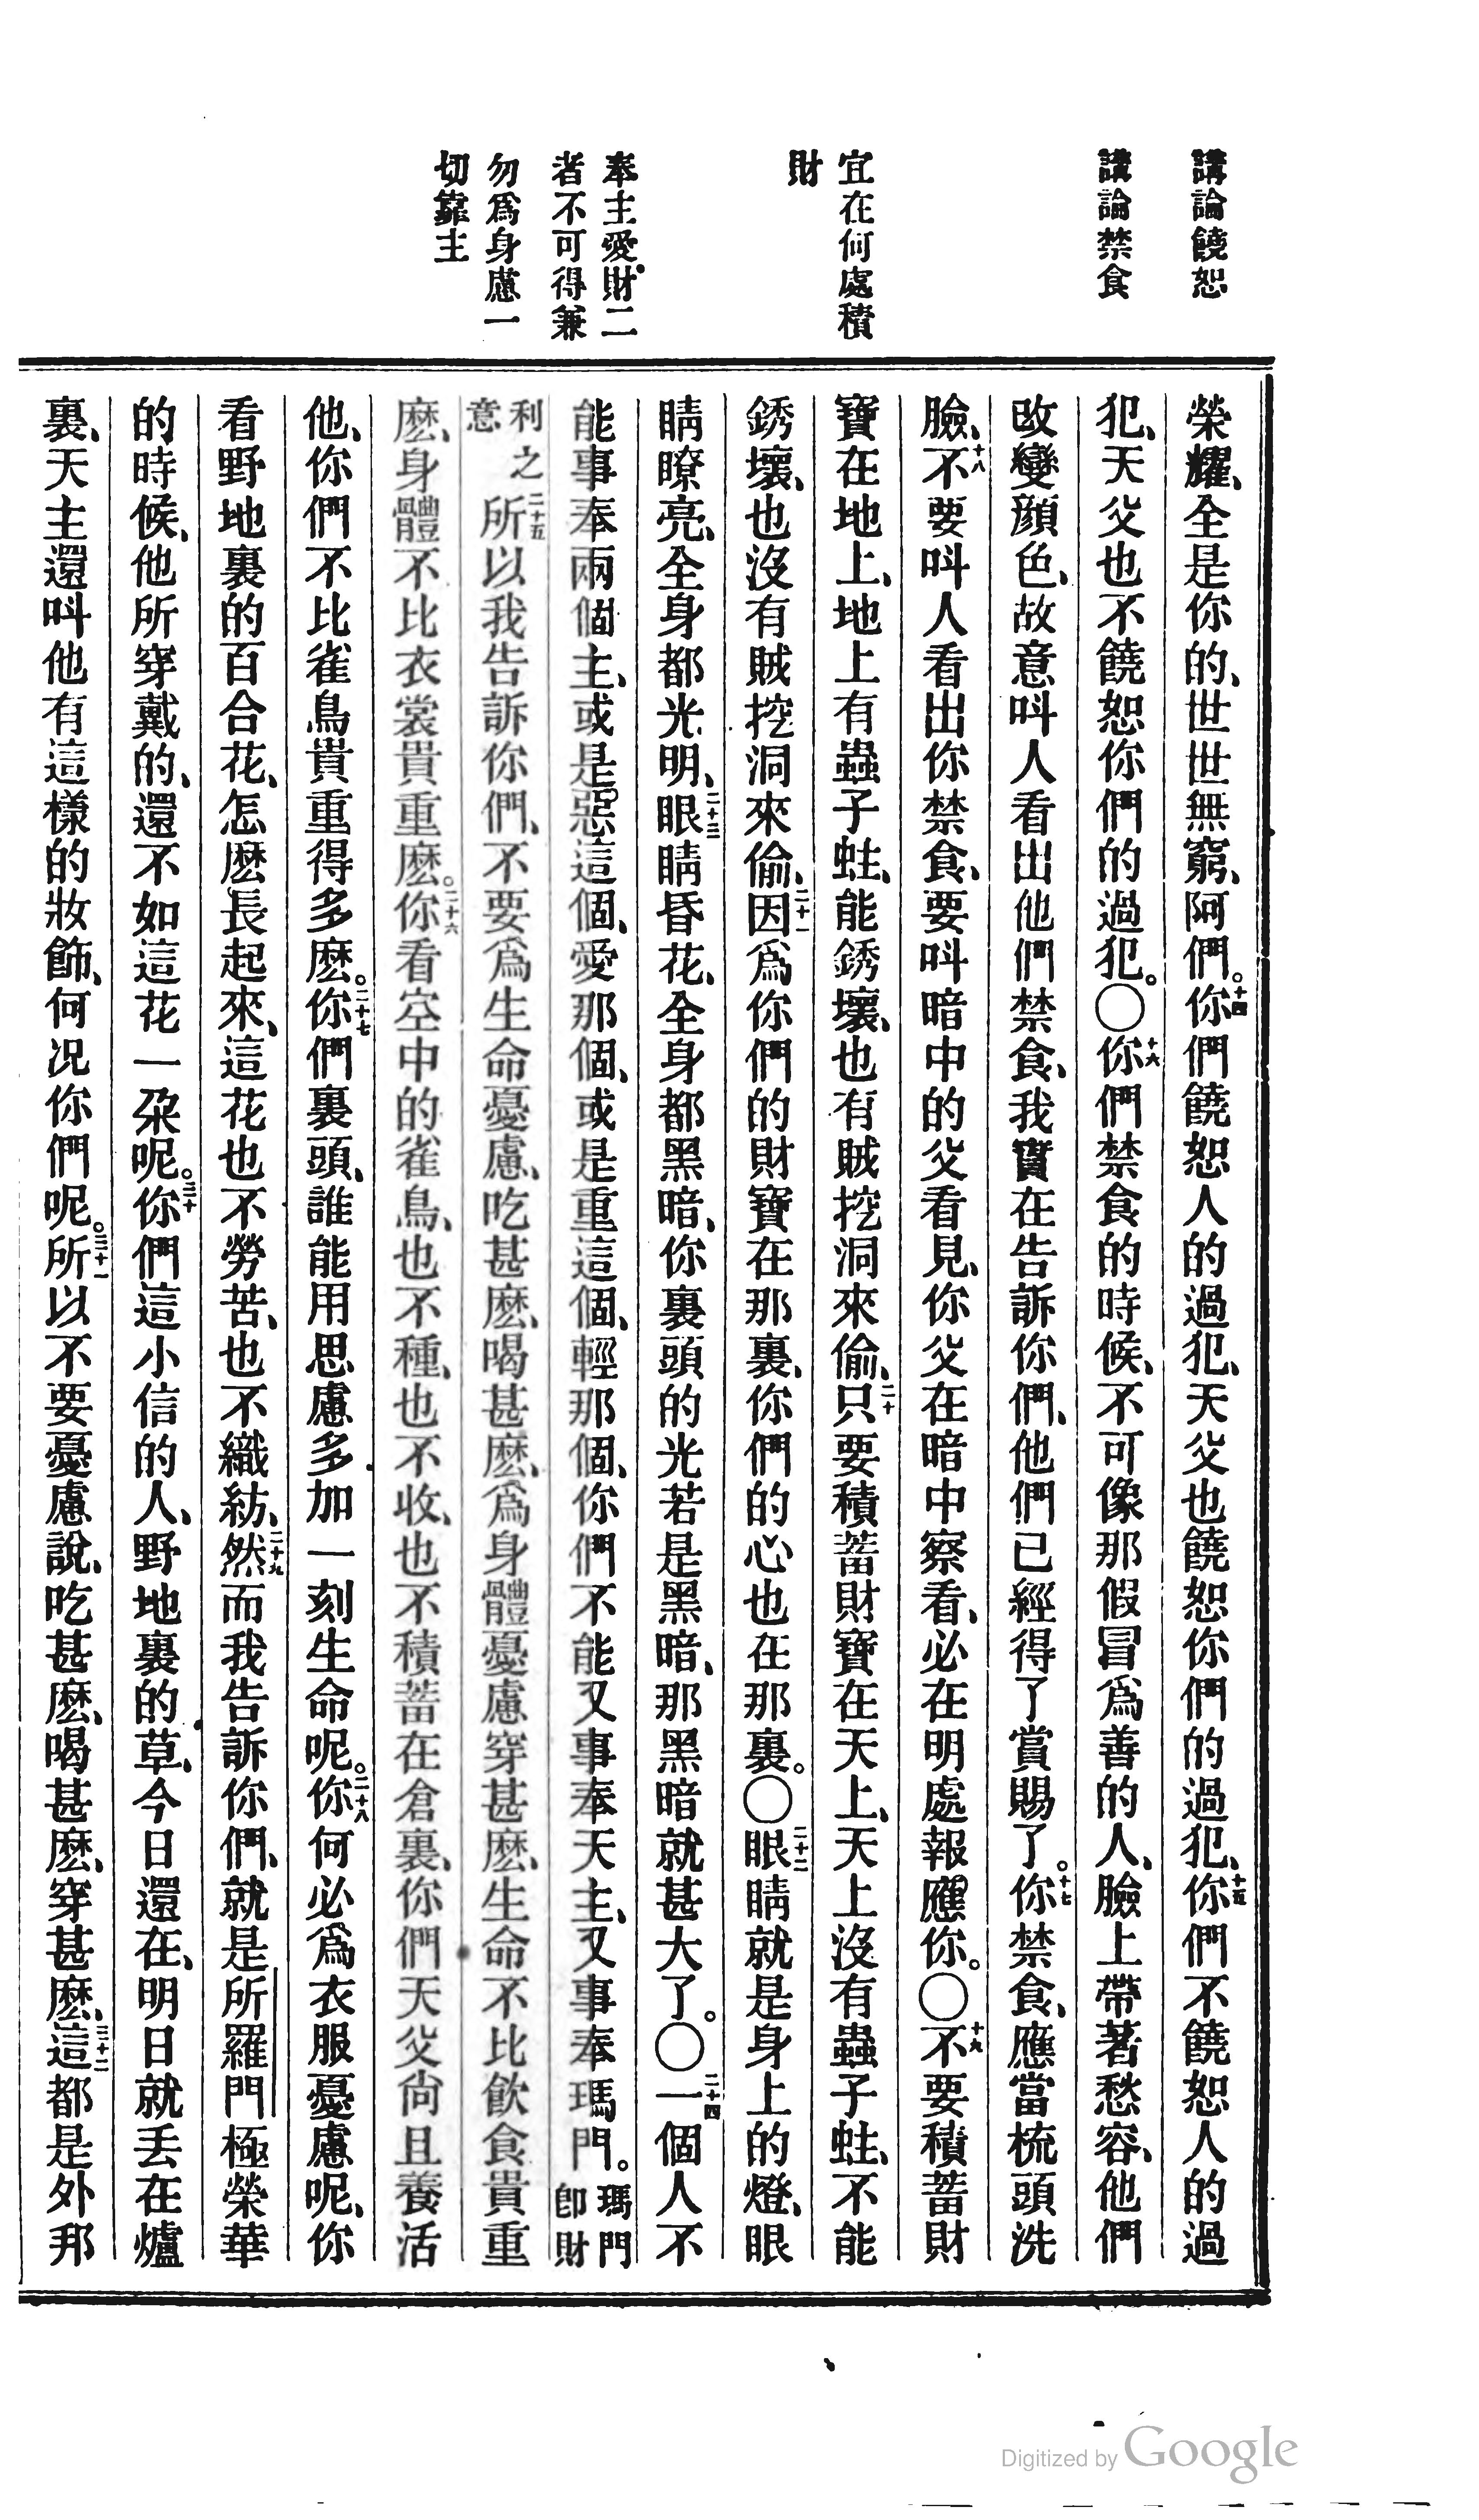 講論饒恕
講論禁食
宜在何處積
財
奉主愛財二
者不可得兼
勿爲身慮一
切靠主
榮耀、全是你的、世世無窮、阿們。十四你們饒恕人的過犯、天父也饒恕你們的過犯、十五你們不饒恕人的過
犯、天父也不饒恕你們的過犯。〇十六你們禁食的時候、不可像那假冒爲善的人、臉上帶著愁容、他們
改變顔色、故意呌人看出他們禁食、我實在告訴你們、他們已經得了賞賜了。十七你禁食、應當梳頭洗
臉、十八不要呌人看出你禁食、要呌暗中的父看見、你父在暗中察看、必在明處報應你。〇十九不要積蓄財
寶在地上、地上有蟲子蛀、能銹壞、也有賊挖洞來偷、二十只要積蓄財寶在天上、天上沒有蟲子蛀、不能
銹壞、也沒有賊挖洞來偷、二十一因爲你們的財寶在那裏、你們的心也在那裏。〇二十二眼睛就是身上的燈、眼
睛瞭亮、全身都光明、二十三眼睛昏花、全身都黑暗、你裏頭的光若是黑暗、那黑暗就甚大了。〇二十四一個人不
能事奉兩個主、或是惡這個、愛那個、或是重這個、輕那個、你們不能又事奉天主、又事奉瑪門。瑪門卽財
利之意二十五所以我告訴你們、不要爲生命憂慮、吃甚麽、喝甚麽、爲身體憂慮穿甚麽、生命不比飮食貴重
麽、身體不比衣裳貴重麽。二十六你看空中的雀鳥、也不種、也不收、也不積蓄在倉裏、你們天父尙且養活
他、你們不比雀鳥貴重得多麽。二十七你們裏頭、誰能用思慮多加一刻生命呢。二十八你何必爲衣服憂慮呢、你
看野地裏的百合花、怎麽長起來、這花也不勞苦、也不織紡、二十九然而我告訴你們、就是所羅門極榮華
的時候、他所穿戴的、還不如這花一朶呢。三十你們這小信的人、野地裏的草、今日還在、明日就丟在爐
裏、天主還呌他有這樣的妝飾、何况你們呢。三十一所以不要憂慮說、吃甚麽、喝甚麽、穿甚麽、三十二這都是外邦
Digitized by Google